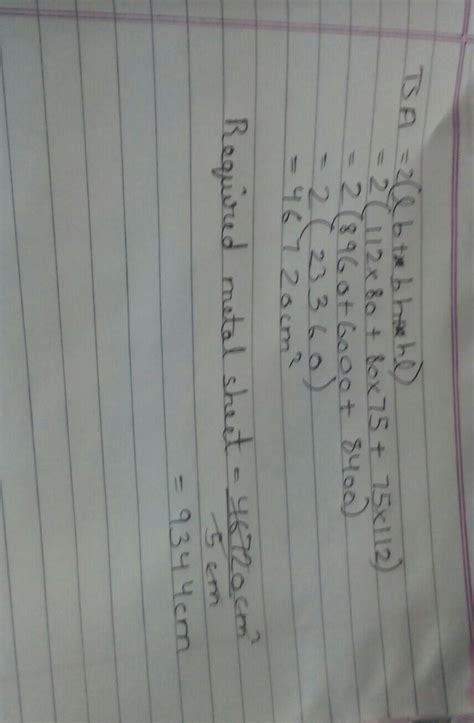 TSA = 2(lb + bh + hl)
= 2(112x80 + 80x75 + 75x112)
= 2(8960+6000+ 8400)
= 2(23360)
= 46720cm²
Required metal sheet = 46720cm²
5cm
= 9344cm